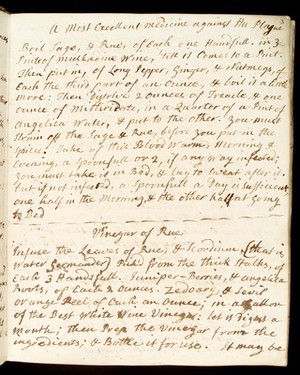 A Most Excellent medicine against the Plague
Boil Sage, & Rue, of Each one Handfull, in 3
Pints of Muskadine Wine, till it comes to a Pint.
Then put in, of Long Pepper, Ginger, & Nutmeg, of
Each the third part of an Ounce, & boil it a little
more: Then Dissolve 2 Ounces of Treacle, & one
Ounce of Mithridate, in a Quarter of a Pint of
Angelica Water, & put to the other. You must
Strain off the Sage & Rue, before you put in the
Spices. Take of this Blood Warm, Morning &
Evening, a Spoonfull or 2, if any way infected;
You must take it in Bed, & lay to sweat after it.
but if not infected, a Spoonfull a Day is sufficient
one half in the Morning, & the other half at Going
to Bed
Vinegar of Rue
Infuse the Leaves of Rue, & Scordium, (that is
Water Germander) Pick'd from the thick Stalks, of
Each 3 Handfull. Juniper-Berries, & Angelica
Roots, of Each 2 Ounces. Zedoary, & Sevil
orange Peel of Each an Ounce; in a Gallon
of the Best White Wine Vinegar: let it Digest a
Month; then Press the Vinegar from the
ingredients; & Bottle it for use. It may be